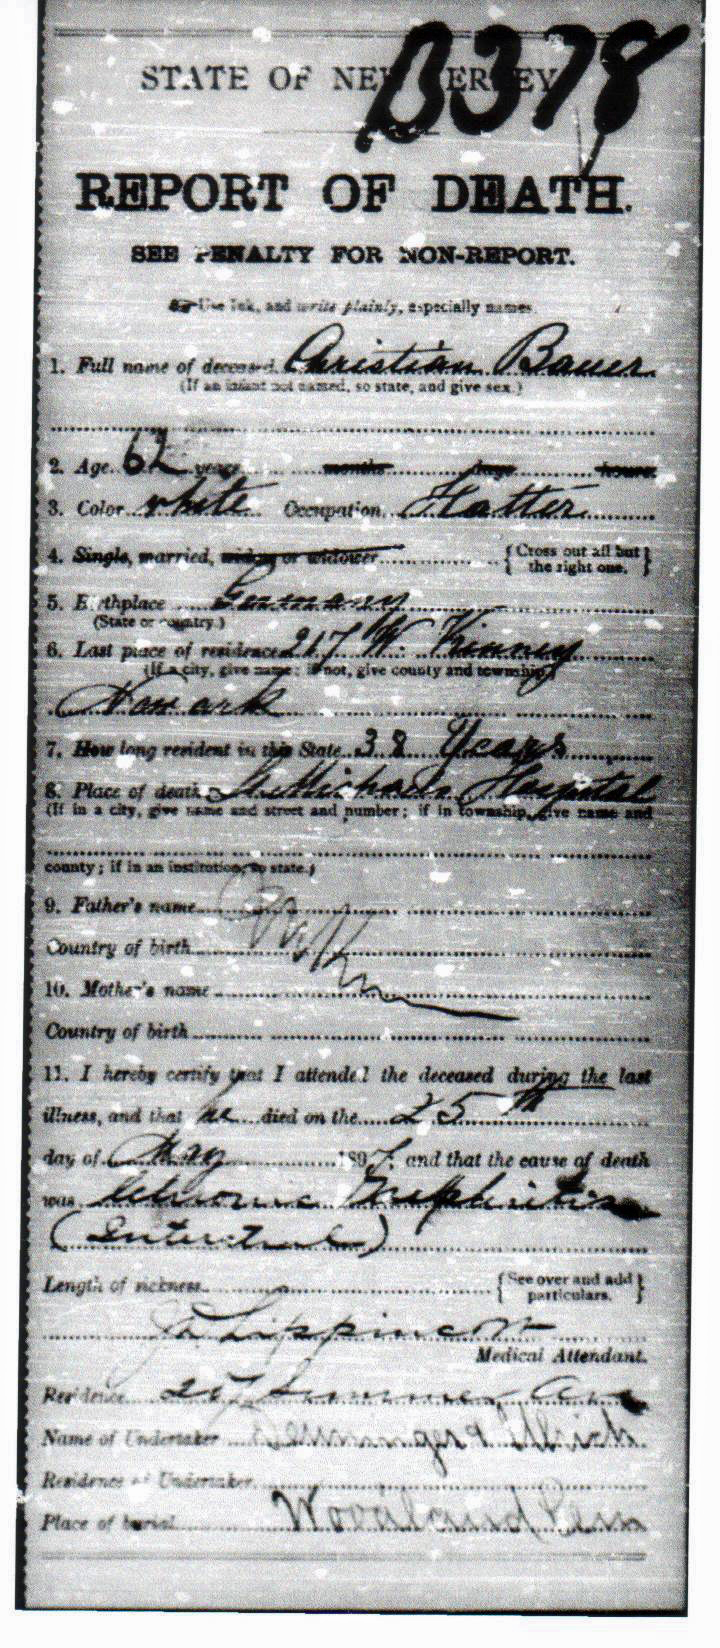 B378
STATE OF NEW JERSEY
REPORT OF DEATH.
SEE PENALTY FOR NON-REPORT.
Use Ink, and write plainly, especially names.
1. Full name of deceased Christian Bauer
(If an infant not named, so state, and give sex.)
2. Age 62 years months days hours
3. Color white Occupation Hatter
4. Single, married, widow or widower {Cross out all but the right one.}
5. Birthplace Germany
(State or country.)
6. Last place of residence 217 W. Kinney
(If a city, give name; if not, give county and township)
Newark
7. How long resident in this State 38 Years
8. Place of death St Michaels Hospital
(If in a city, give name and street and number; if in township, give name and
county; if in an institution, so state.)
9. Father's name
Country of birth
10. Mother's name
Country of birth
11. I hereby certify that I attended the deceased during the last
illness, and that he died on the 25th
day of May 1897, and that the cause of death
was Chronic Nephritis
(Interstitial)
Length of sickness {See over and add particulars.}
Lippincott
Medical Attendant.
Residence 207 Summer Ave
Name of Undertaker & Ulrich
Residence of Undertaker
Place of burial Woodland Cem